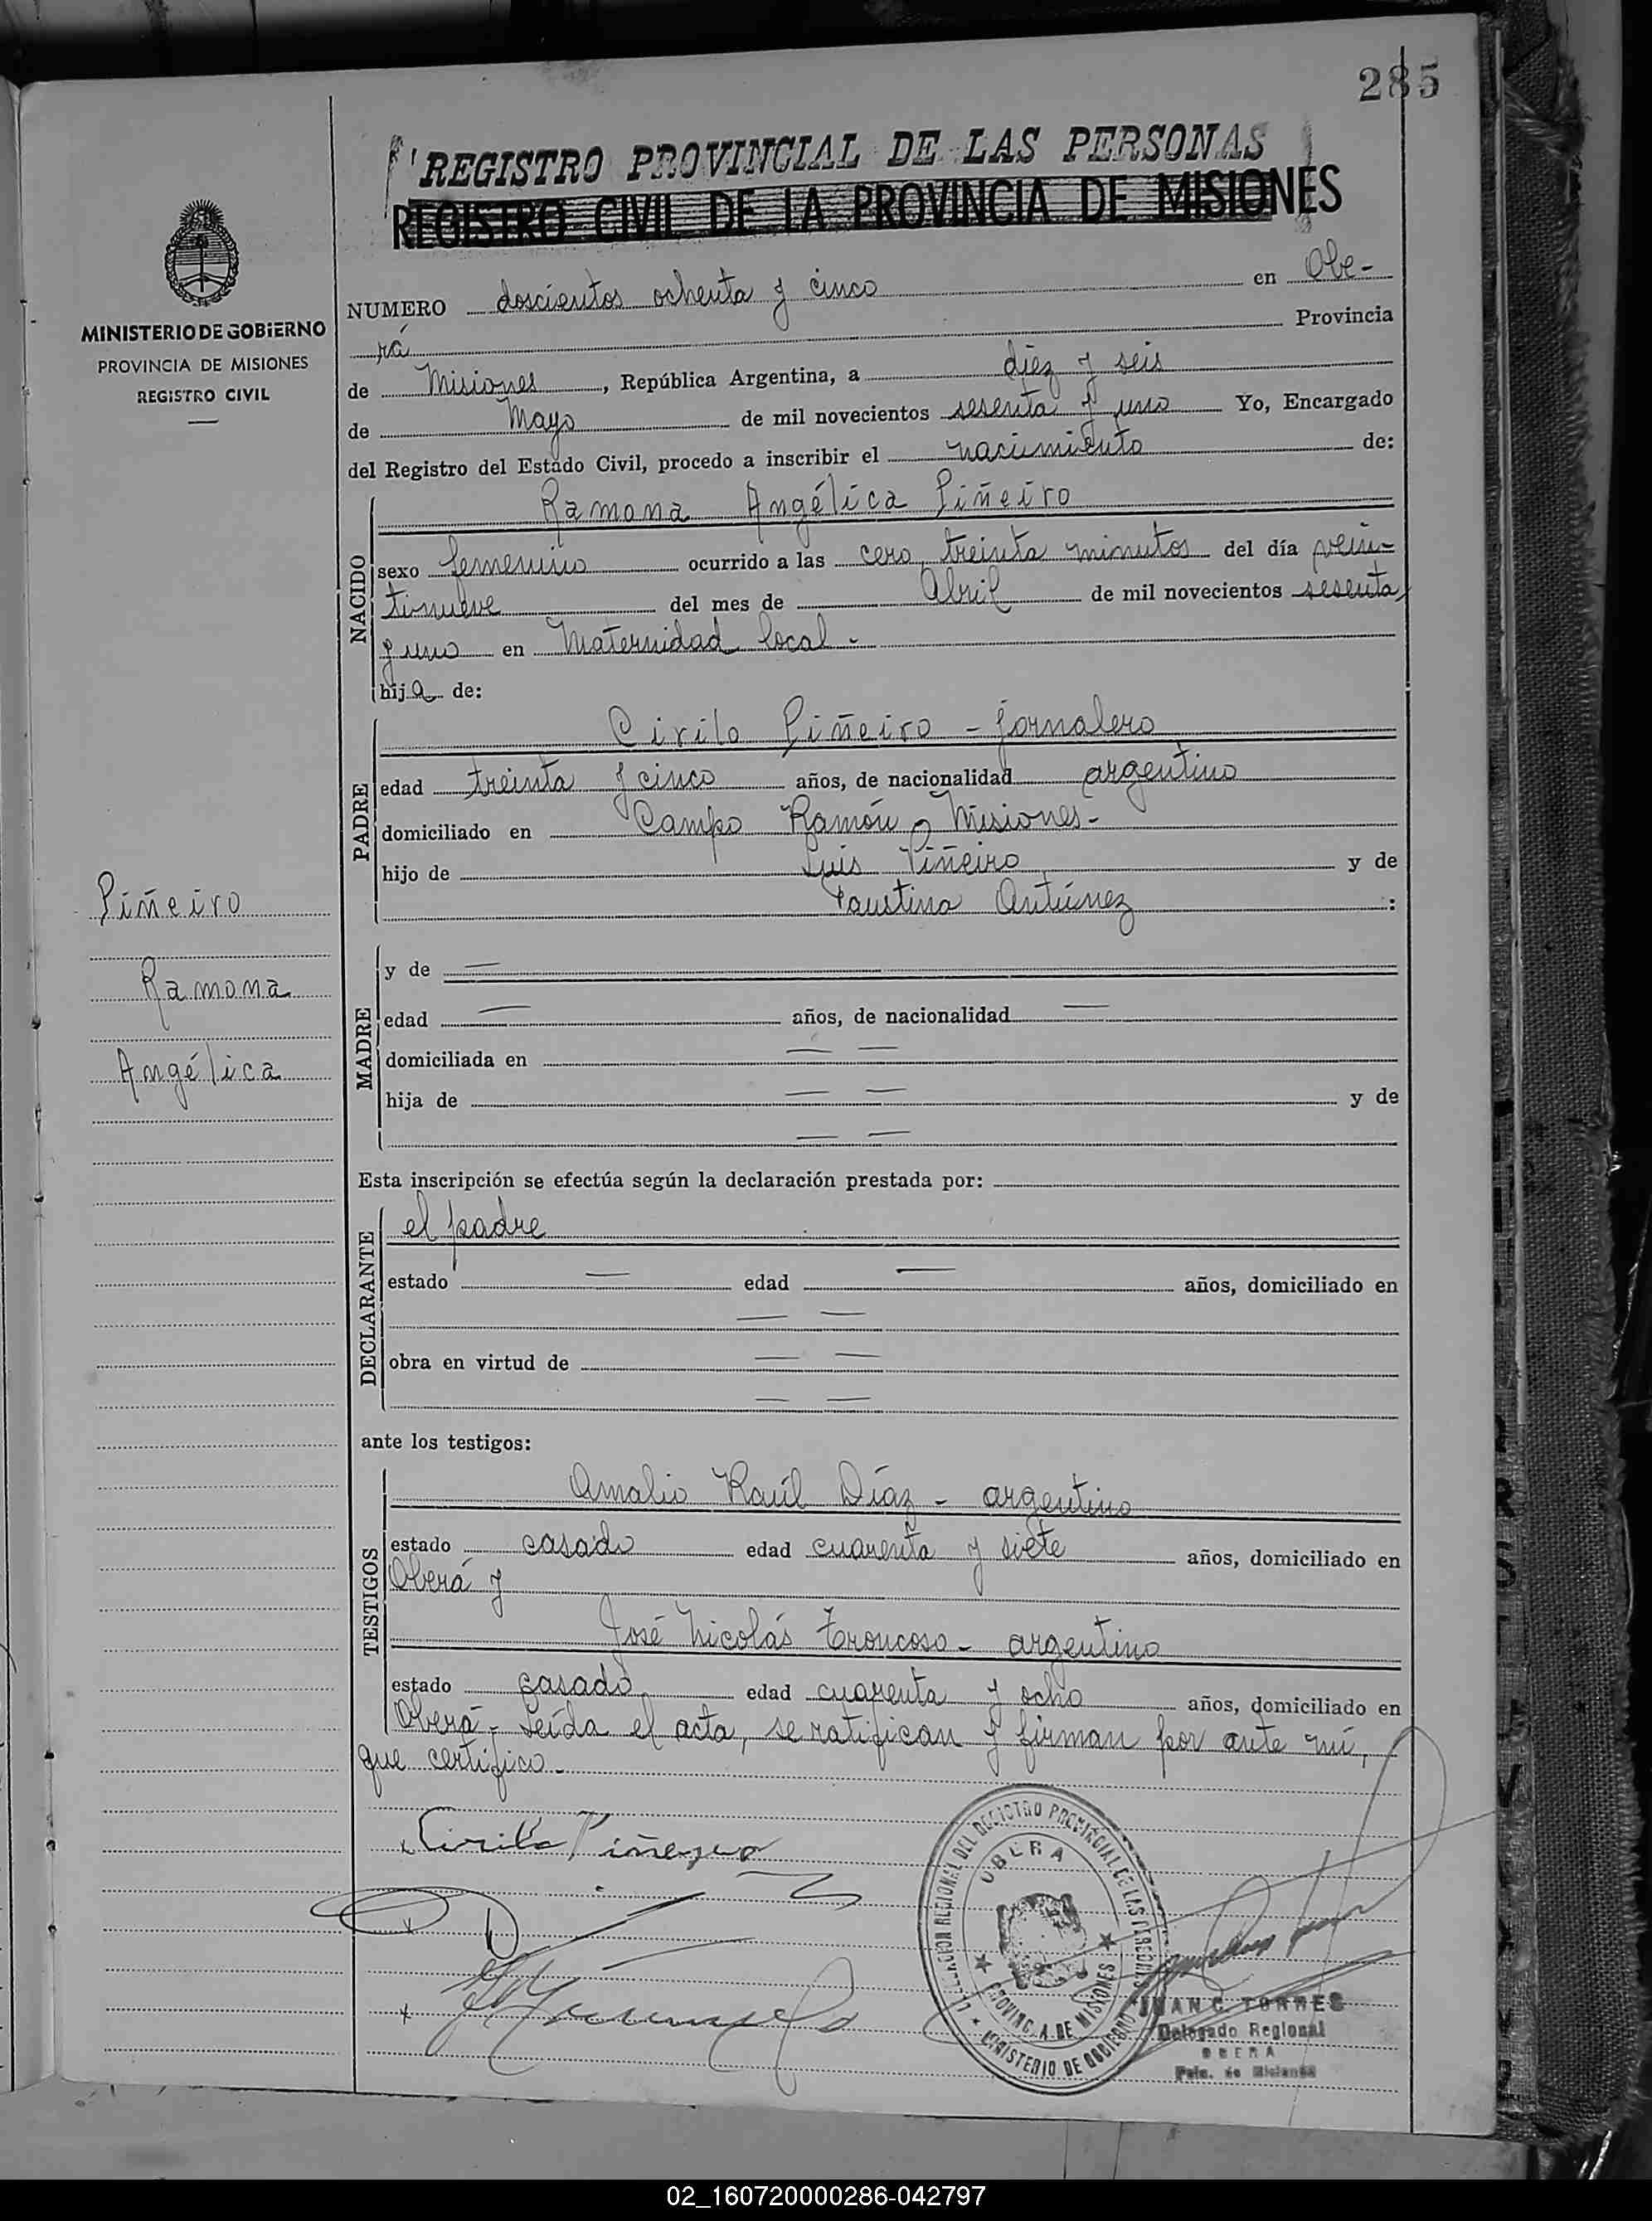 285
REGISTRO PROVINCIAL DE LAS PERSONAS
REGISTRO CIVIL DE LA PROVINCIA DE MISIONES
MINISTERIO DE GOBIERNO
PROVINCIA DE MISIONES
REGISTRO CIVIL
NUMERO doscientos ochenta y cinco en Obe-
rá Provincia
de Misiones, República Argentina, a diez y seis
de Mayo de mil novecientos sesenta y uno Yo, Encargado
del Registro del Estado Civil, procedo a inscribir el nacimiento de:
NACIDO
Ramona Angélica Piñeiro
sexo femenino ocurrido a las cero, treinta minutos del día vein-
tinueve del mes de Abril de mil novecientos sesenta
y uno en Maternidad local.-
hija de:
PADRE
Cirilo Piñeiro - jornalero
edad treinta y cinco años, de nacionalidad argentino
domiciliado en Campo Ramón, Misiones-
hijo de Luis Piñeiro y de
Faustina Antúnez :
Piñeiro
Ramona
Angélica
MADRE
y de —
edad — años, de nacionalidad —
domiciliada en — —
hija de — — y de
— —
Esta inscripción se efectúa según la declaración prestada por:
DECLARANTE
el padre
estado — edad — años, domiciliado en
— —
obra en virtud de — —
— —
ante los testigos:
TESTIGOS
Amalio Raúl Díaz - argentino
estado casado edad cuarenta y siete años, domiciliado en
Oberá y
José Nicolás Troncoso - argentino
estado casado edad cuarenta y ocho años, domiciliado en
Oberá.- Leída el acta, se ratifican y firman por ante mí,
que certifico.-
Cirilo Piñeyro
DELEGACION REGIONAL DEL REGISTRO PROVINCIAL DE LAS PERSONAS
OBERA
PROVINCIA DE MISIONES
MINISTERIO DE GOBIERNO
JUAN C. TORRES
Delegado Regional
OBERA
Pcia. de Misiones
02_160720000286-042797